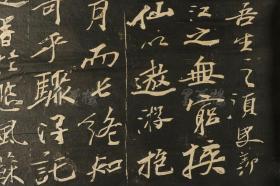 吾生之須臾羨
江之無窮挾
仙以遨遊抱
月而長終知
可乎驟得託
響於悲風蘇